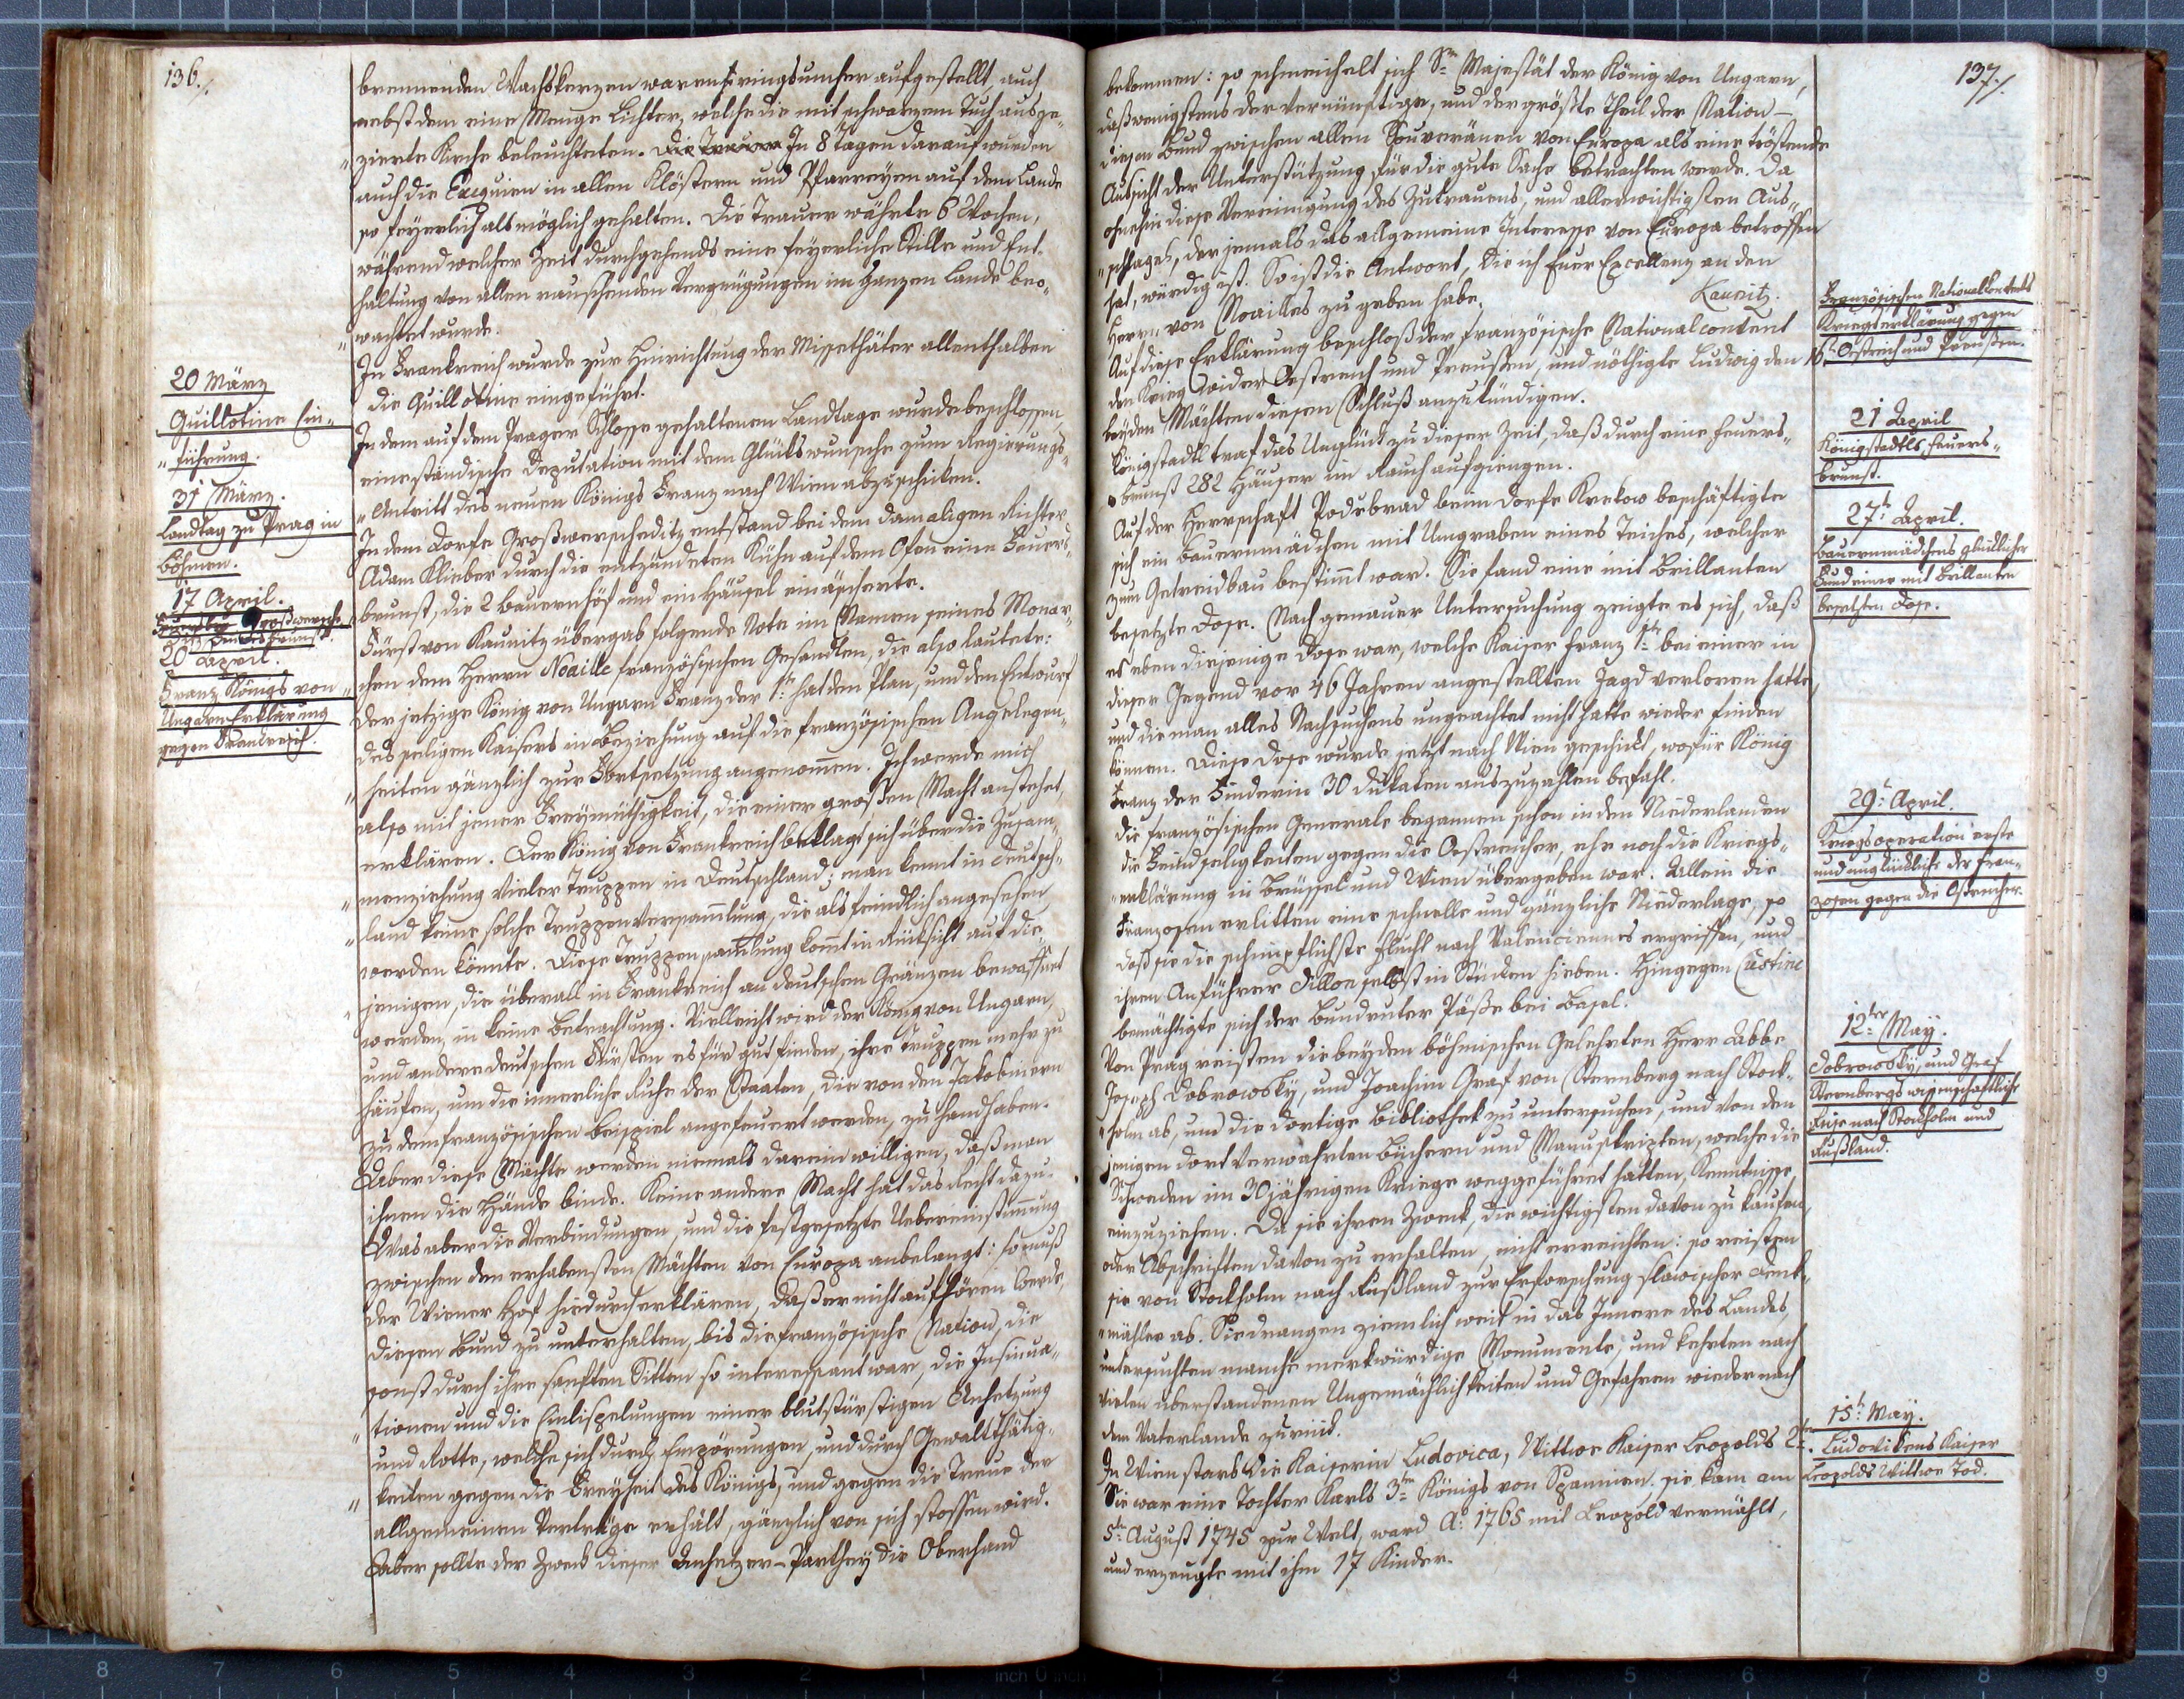 136.
brennenden Wachskerzen waren ringsumher aufgestellt, auch
nebst dem eine Menge Lichter, welche die mit schwarzem Tuch ausge„
„zierte Kirche beleuchteten. Die Trauer In 8 Tagen darauf wurden
auch die Exequien in allen Klöstern und Pfarreyen auf dem Lande
so feyerlich als möglich gehalten. Die Trauer währte 6 Wochen,
während welcher Zeit durchgehends eine feyerliche Stille und Ent„
haltung von allen rauschenden Vergnügungen im ganzen Lande beo„
„wachtet wurde.
20 März
Guillotine Ein„
„führung.
In Frankreich wurde zur Hinrichtung der Missethäter allenthalben
die Guillotine eingeführt.
31 März.
Landtag zu Prag in
Böhmen.
In dem auf dem Prager Schlosse gehaltenen Landtage wurde beschlossen,
eine ständische Deputation mit dem Glückswunsche zum Regierungs„
„Antritt des neuen Königs Franz nach Wien abzuschicken.
17 April.
In dem Dorfe Großwerscheditz entstand bei dem damaligen Richter
Adam Klieber durch die entzündeten Kühn auf dem Ofen eine Feuers„
brunst, die 2 Bauernhöf und ein Häusel einäscherte.
20 April.
Franz Königs von
Ungarn Erklärung
gegen Frankreich.
Fürst von Kaunitz übergab folgende Note im Namen seines Monar„
chen dem Herrn Noaille französischen Gesandten, die also lautete:
Der jetzige König von Ungarn Franz der 1te hat den Plan, und den Entwurf
des seligen Kaisers in Beziehung auf die französischen Angelegen„
„heiten gänzlich zur Fortsetzung angenommen. Ich werde mich
also mit jener Freymüthigkeit, die einer großen Macht anstehet,
erklären. Der König von Frankreich beklagt sich über die Zusam„
„menziehung vieler Truppen in Deutschland; man kennt in Deutsch„
„land keine solche Truppenversammlung, die als feindlich angesehen
werden könnte. Diese Truppensamlung komt in Rüksicht auf die„
„jenigen, die überall in Frankreich an deutschen Gränzen bewaffnet
werden, in keine Betrachtung. Vielleicht wird der König von Ungarn,
und andere deutschen Fürsten es für gut finden, ihre Truppen mehr zu
häufen, um die innerliche Ruhe der Staaten, die von den Jakobinern
zu dem französischen Beispiel angefeuert werden, zu handhaben.
Aber diese Mächte werden niemals darein willigen, daß man
ihnen die Hände binde. Keine andere Macht hat das Recht dazu.
Was aber die Verbindungen, und die festgesetzte Uebereinstimmung
zwischen den erhabensten Mächten von Europa anbelangt: so muß
der Wiener Hof hiedurch erklären, daß er nicht aufhören werde,
diesen Bund zu unterhalten, bis die französische Nation, die
sonst durch ihre sanften Sitten so interessant war, die Insinua„
„tionen und die Einlispelungen einer blutdürstigen Anhetzung
und Rotte, welche sich durch Empörungen, und durch Gewaltthätig„
„keiten gegen die Freyheit des Königs, und gegen die Treue der
allgemeinen Verträge erhält, gänzlich von sich stossen wird.
Aber sollte der Zweck dieser Anhetzer-Parthey die Oberhand
137.
bekommen: so schmeichelt sich Se Majestät der König von Ungarn,
daß wenigstens der vernünftige, und der größte Theil der Nation
diesen Bund zwischen allen Souveränen von Europa als eine tröstende
Aussicht der Unterstützung für die gute Sache betrachten werde. Da
ohnehin diese Vereinigung des Zutrauens, und allerwichtigsten Aus„
„schlages, der jemals das allgemeine Interesse von Europa betroffen
hat, würdig ist. So ist die Antwort, die ich Euer Excellenz an den
Herrn von Noailles zu geben habe.
Kaunitz.
Französischen Nationalkonvents
Kriegserklärung gegen
Östreich und Preußen.
Auf diese Erklärung beschloß der französische Nationalconvent
den Krieg wider Oestreich und Preussen, und nöthigte Ludwig den 16.
beyden Mächten diesen Schluß anzukündigen.
21 April
Königstadtls Feuers„
brunst.
Königstadtl traf das Unglück zu dieser Zeit, daß durch eine Feuers„
brunst 282 Häuser im Rauch aufgiengen.
27t April.
Bauernmädchens glücklicher
Fund einer mit Brillanten
besetzten Dose.
Auf der Herrschaft Podebrad beim Dorfe Krekow beschäftigte
sich ein Bauernmädchen mit Umgraben eines Teiches, welcher
zum Getreidbau bestimt war. Sie fand eine mit Brillanten
besetzte Dose. Nach genauer Untersuchung zeigte es sich, daß
es eben diejenige Dose war, welche Kaiser Franz 1te bei einer in
dieser Gegend vor 46 Jahren angestellten Jagd verloren hatte,
und die man alles Nachsuchens ungeachtet nicht hatte wieder finden
können. Diese Dose wurde jetzt nach Wien geschickt, wofür König
Franz der Finderin 30 Dukaten auszuzahlen befahl.
29t April.
Kriegsoperation erste
und unglückliche der Fran„
zosen gegen die Östreicher.
Die französischen Generale begannen schon in den Niederlanden
die Feindseligkeiten gegen die Oestreicher, ehe noch die Kriegs„
„erklärung in Brüssel und Wien übergeben war. Allein die
Franzosen erlitten eine schnelle und gänzliche Niederlage, so
daß sie die schimpflichste Flucht nach Valenciennes ergriffen, und
ihren Anführer Dillon selbst in Stücken hieben. Hingegen Custine
bemächtigte sich der Bundruter Päße bei Basel.
12ter May.
Dobrowsky, und Graf
Sternbergs wissenschaftliche
Reise nach Stockholm und
Rußland.
Von Prag reisten die beyden böhmischen Gelehrten Herr Abbe
Joseph Dobrowsky, und Joachim Graf von Sternberg nach Stock„
„holm ab, um die dortige Bibliothek zu untersuchen, und von den
jenigen dort verwahrten Büchern und Manuskripten, welche die
Schweden im 30 jährigen Kriege weggeführet hatten, Kenntnisse
einzuziehen. Da sie ihren Zweck, die wichtigsten davon zu kaufen,
oder Abschriften davon zu erhalten, nicht erreichten: so reisten
sie von Stockholm nach Rußland zur Erforschung slawischer Denk„
„mähler ab. Sie drangen ziemlich weit in das Innere des Landes,
untersuchten manche merkwürdige Monumente, und kehrten nach
vielen überstandenen Ungemächlichkeiten und Gefahren wieder nach
dem Vaterlande zurück.
15t May.
Ludovikens Kaiser
Leopolds Wittwe Tod.
In Wien starb die Kaiserin Ludovica, Wittwe Kaiser Leopolds 2ten.
Sie war eine Tochter Karls 3ten Königs von Spanien. sie kam am
5te August 1745 zur Welt, ward Ao 1765 mit Leopold vermählt,
und erzeugte mit ihm 17 Kinder.
8 7 6 5 4 3 2 1 inch 0 inch 1 2 3 4 5 6 7 8 9